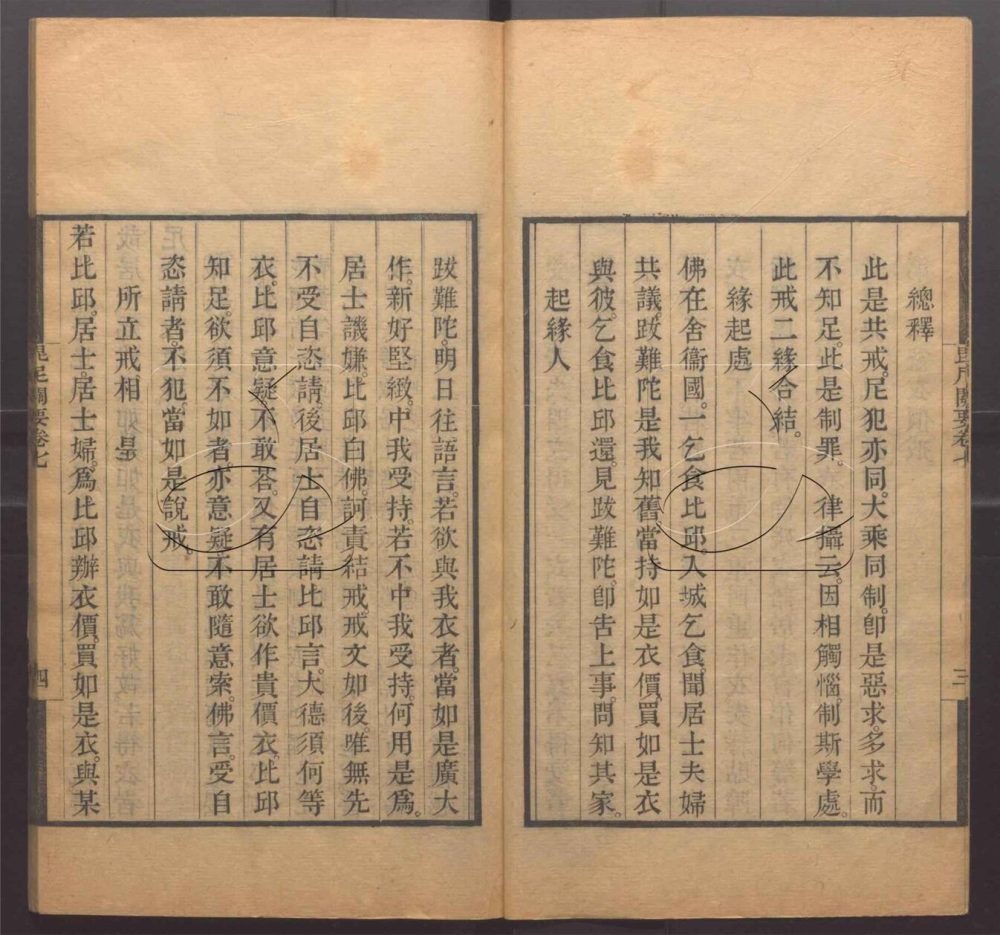 總釋
此是共戒。尼犯亦同。大乘同制。卽是惡求。多求。而
不知足。此是制罪。 律攝云。因相觸惱。制斯學處。
此戒二緣合結。
緣起處
佛在舍衞國。一乞食比邱。入城乞食。聞居士夫婦
共議。跋難陀是我知舊。當持如是衣價。買如是衣
與彼。乞食比邱還。見跋難陀。卽告上事。問知其家。
起緣人
跋難陀。明日往語言。若欲與我衣者。當如是廣大
作。新好堅緻。中我受持。若不中我受持。何用是爲。
居士譏嫌。比邱白佛。訶責結戒。戒文如後。唯無先
不受自恣請後居士自恣請比邱言。大德須何等
衣。比邱意疑不敢荅。又有居士欲作貴價衣。比邱
知足。欲須不如者。亦意疑不敢隨意索。佛言。受自
恣請者。不犯。當如是說戒。
所立戒相
若比邱。居士。居士婦。爲比邱辦衣價。買如是衣。與某
毘尼關要卷七
四
三